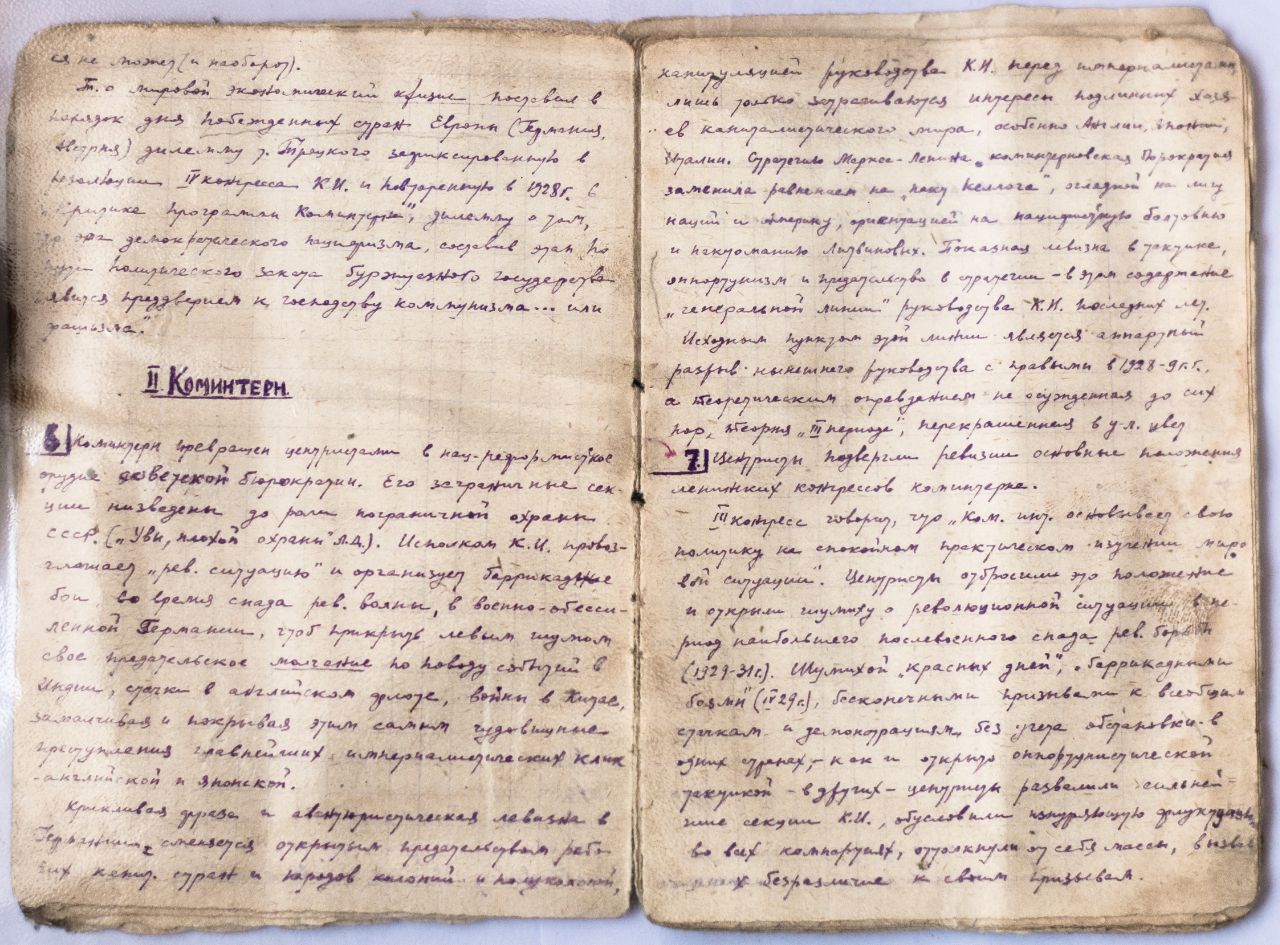 ся не может (и наоборот).
Т. о мировой экономический кризис поставил в
порядок дня побежденных стран Европы (Германия,
Австрия) дилемму т. Троцкого зафиксированную в
резолюции IV конгресса К.И. и повторенную в 1928г. в
„Критике программы Коминтерна", дилемму о том,
что эра демократического пацифизма, составив этап по
пути политического заката буржуазного государства
явится преддверием к господству коммунизма... или
фашизма.
II КОМИНТЕРН.
6| Коминтерн превращен центристами в нац-реформистское
орудие советской бюрократии. Его заграничные сек-
ции низведены до роли пограничной охраны
СССР. („Увы, плохой охраны" Л.Д.). Исполком К.И. провоз-
глашает „рев. ситуацию" и организует баррикадные
бои во время спада рев. волны, в военно-обесси-
ленной Германии, чтоб прикрыть левым шумом
свое предательское молчание по поводу событий в
Индии, стачки в английском флоте, войны в Китае,
замалчивая и покрывая этим самым чудовищные
преступления главнейших империалистических клик
-английской и японской.
Крикливая фраза и авантюристическая левизна в
Германии, сменяется открытым предательством рабо
чих капит. стран и народов колоний и полуколоний,
капитуляцией руководства К.И. перед империалистами
лишь только затрагиваются интересы подлинных хозя-
ев капиталистического мира, особенно Англии, Японии,
Италии. Стратегию Маркса-Ленина коминтерновская бюрократия
заменила равнением на „пакт Келлога", оглядкой на лигу
наций и Америку, ориентацией на пацифистскую болтовню
и пактоманию Литвиновых. Показная левизна в тактике,
оппортунизм и предательство в стратегии - в этом содержание
„генеральной линии" руководства К.И. последних лет.
Исходным пунктом этой линии является аппаратный
разрыв нынешнего руководства с правыми в 1928-9г.г.,
а теоретическим оправданием не осужденная до сих
пор, теория „III периода", перекрашенная в у.л. цвет
7.| Центристы подвергли ревизии основные положения
ленинских конгрессов коминтерна.
III конгресс говорил, что „Ком. инт. основывает свою
политику на спокойном практическом изучении миро
вой ситуации". Центристы отбросили это положение
и открыли шумиху о революционной ситуации в пе-
риод наибольшего послевоенного спада рев. борьбы
(1929-31г.). Шумихой „красных дней", „баррикадными
боями" (IV 29г.), бесконечными призывами к всеобщим
стачкам и демонстрациям, без учета обстановки - в
одних странах, - как и открыто оппортунистической
тактикой - в других - центристы развалили сильней-
шие секции К.И., обусловили изнуряющую флуктуацию
во всех компартиях, оттолкнули от себя массы, вызвав
их безразличие к своим призывам.